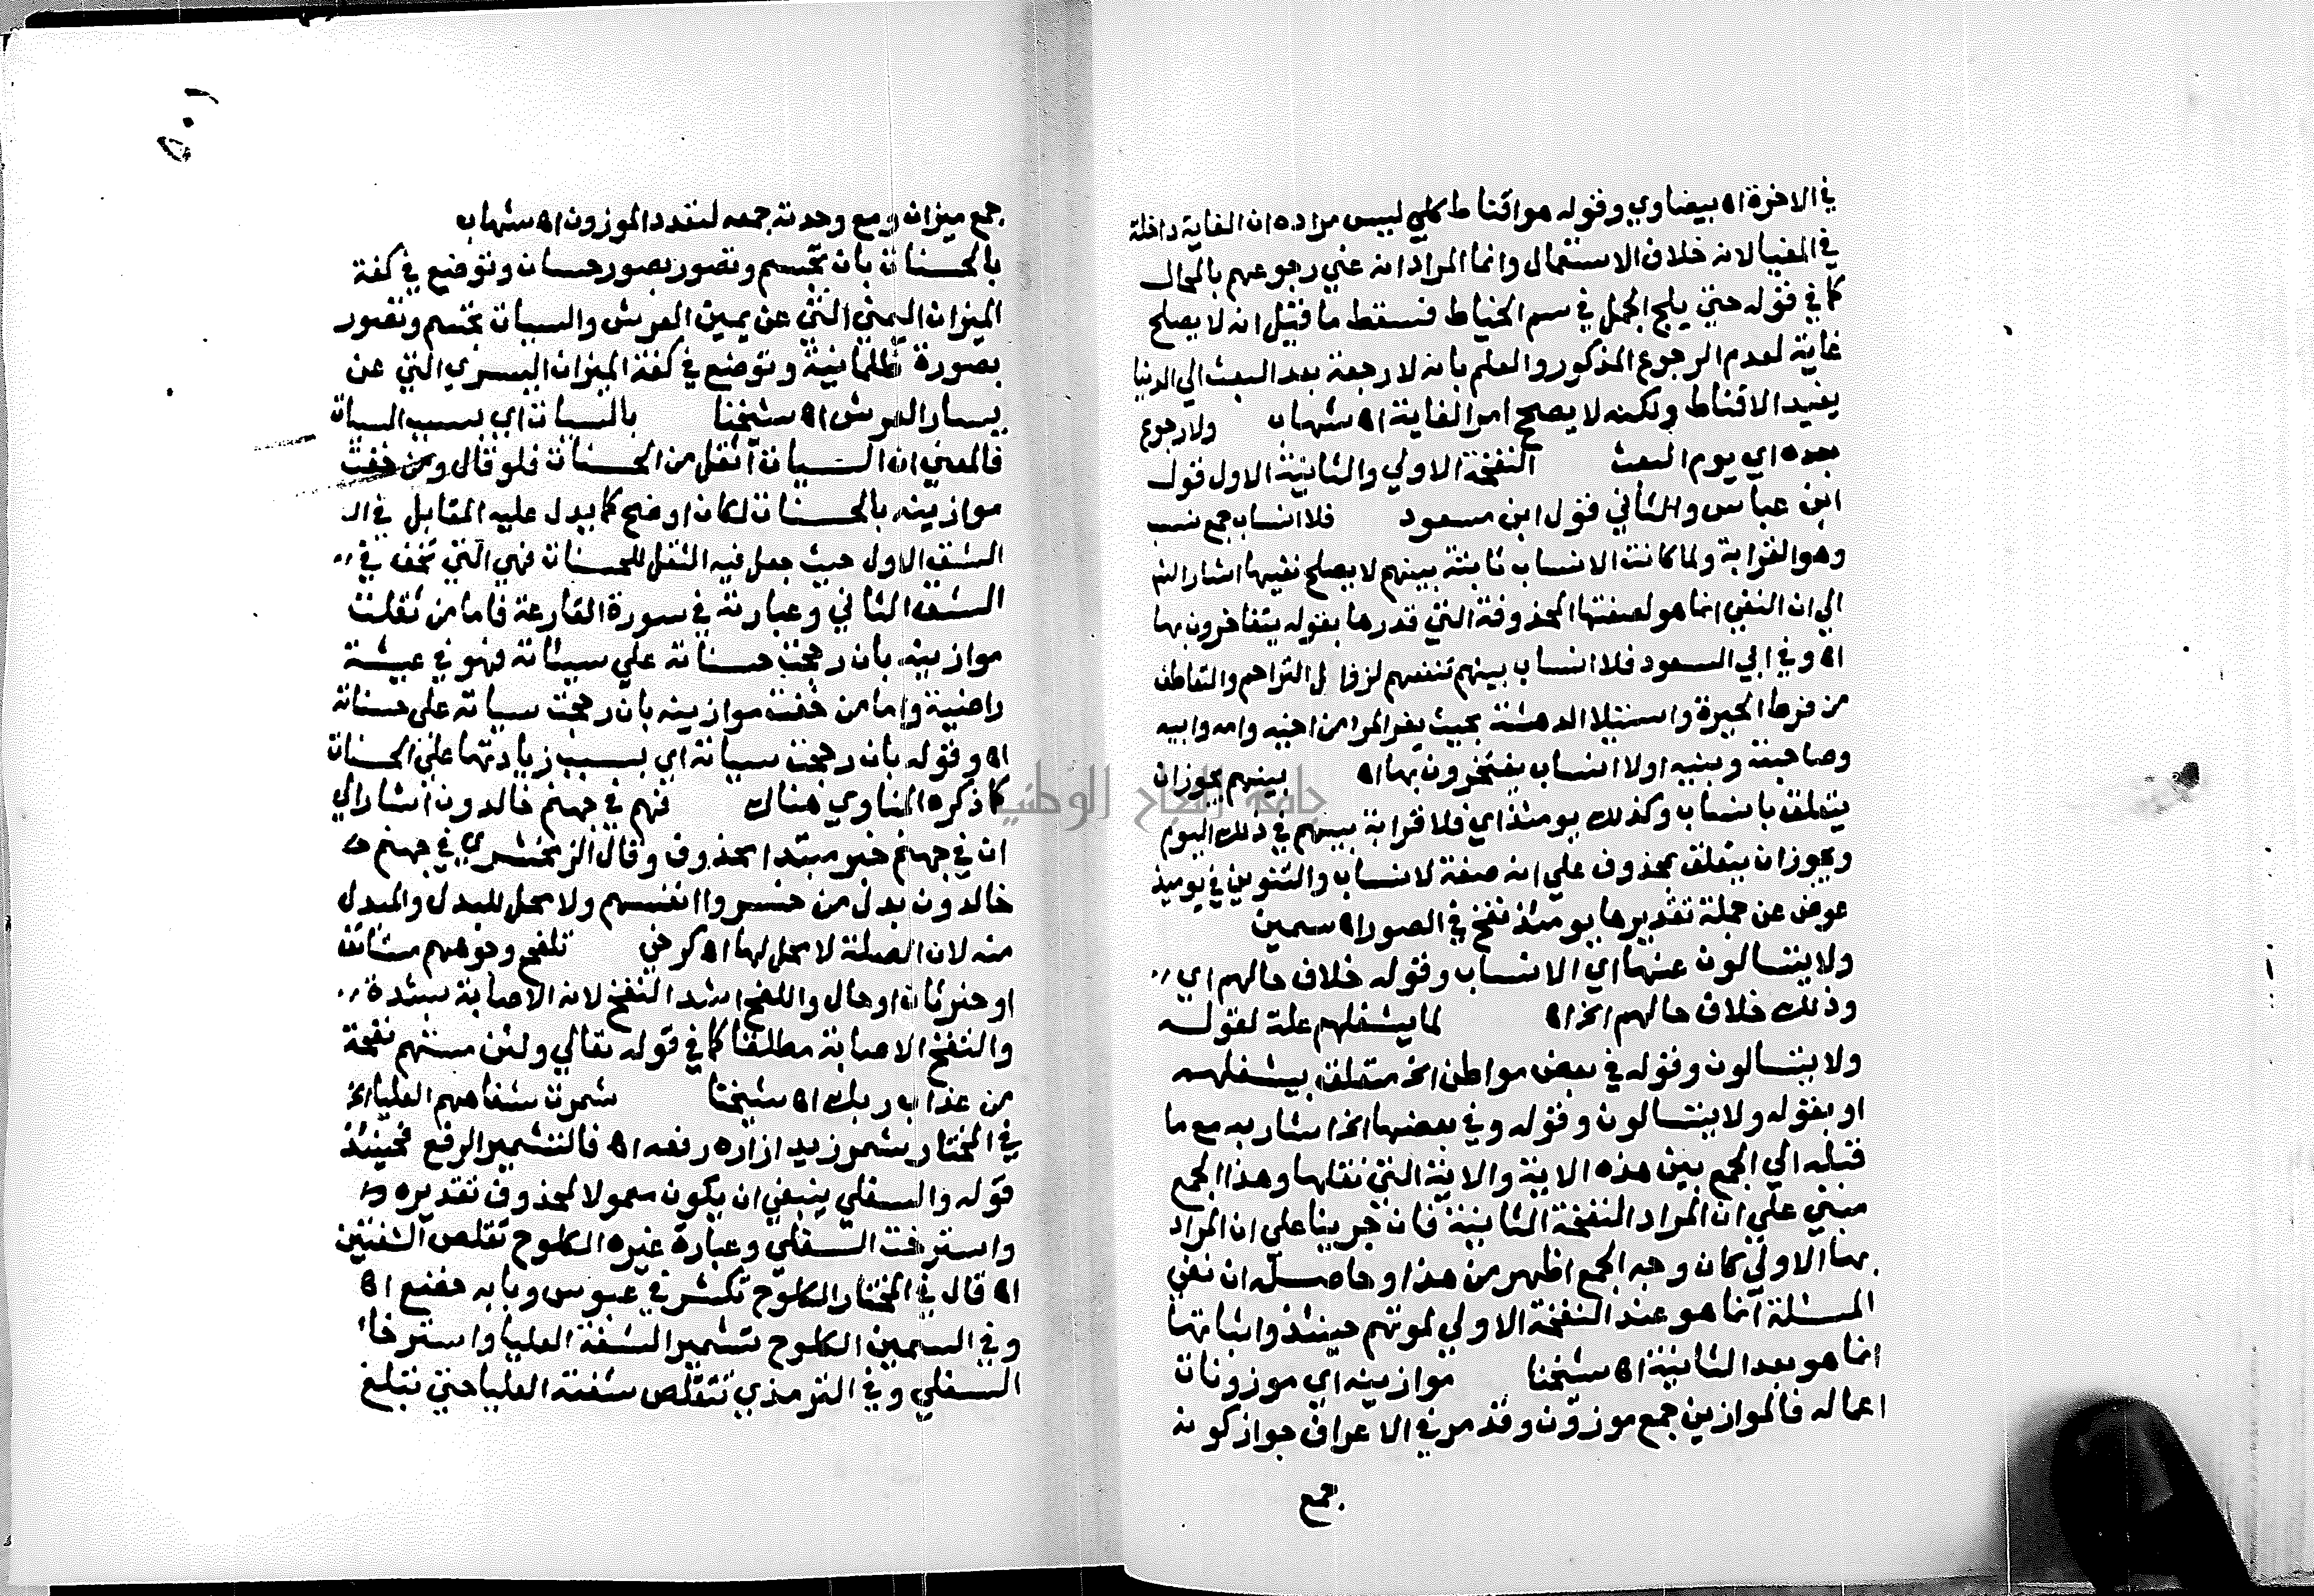 في الاخرة اه بيضاوي وقوله هو اقناط كلي ليس مراده ان الغاية داخلة
في المغيا لانه خلاف الاستعمال وانما المراد انه غني رجوعهم بالمحال
كما في قوله حتى يلج الجمل في سم الخياط فسقط ما قيل انه لا يصلح
غاية لعدم الرجوع المذكور والعلم بانه لا رجعة بعد البعث الى الدنيا
يفيد الاقناط ولكنه لا يصحح امر الغاية اه شهاب ولا رجوع
بعده اي يوم البعث النفخة الاولي والثانية الاول قول
ابن عباس والثاني قول ابن مسعود فلا انساب جمع نسب
وهو القرابة ولما كانت الانساب ثابتة بينهم لا يصلح نفيها اشار الشر
الي ان النفي انما هو لصفتها المحذوفة التي قدرها بقوله يتفاخرون بها
اه وفي ابي السعود فلا انساب بينهم تنفعهم لزوال التراحم والتعاطف
من فرط الحيرة واستيلا الدهشة بحيث يفر المرا من اخيه وامه وابيه
وصاحبته وبنيه اولا انساب يفتخرون بها اه بينهم يجوز ان
يتعلق بانساب وكذلك يومئذ اي فلا قرابة بينهم في ذلك اليوم
ويجوز ان يتعلق بمحذوف علي انه صفة لانساب والتنوين في يوميذ
عوض عن جملة تقديرها يومئذ نفخ في الصور اه سمين
ولا يتسالون عنها اي الانساب وقوله خلاف حالهم اي
وذلك خلاف حالهم الخ اه لما يشغلهم علة لقوله
ولا يتسالون وقوله في بعض مواطن الخ متعلق بيشغلهم
او بقوله ولا يتسالون وقوله وفي بعضها الخ اشار به مع ما
قبله الي الجمع بين هذه الاية والاية التي نقلها وهذا الجمع
مبني علي ان المراد النفخة الثانية فان جرينا علي ان المراد
بها الاولي كان وجه الجمع اظهر من هذا وحاصله ان نفي
المسئلة انما هو عند النفخة الاولي لموتهم حينئذ واثباتها
انما هو بعد الثانية اه شيخنا موازينه اي موزونات
اعماله فالموازين جمع موزون وقد مر في الاعراف جواز كونه
جمع
٥٠١
جمع ميزان ومع وحدته جمعه لتعدد الموزون اه شهاب
بالحسنات بان تجسم وتصور بصور حسان وتوضع في كفة
الميزان اليمني التي عن يمين العرش والسيات تجسم وتصور
بصورة ظلمانية وتوضع في كفة الميزان اليسري التي عن
يسار العرش اه شيخنا بالسيات اي بسبب السيات
فالمعني ان السيات اثقل من الحسنات فلو قال ومن خفت
موازينه بالحسنات لكان اوضح كما يدل عليه المقابل في ال
الشق الاول حيث جعل فيه الثقل للحسنات فهي التي تخف في
الشق الثاني وعبارته في سورة القارعة فاما من ثقلت
موازينه بان رجحت حسناته علي سيئاته فهو في عيشة
راضية واما من خفت موازينه بان رجحت سياته علي حسناته
اه وقوله بان رجحت سياته اي بسبب زيادتها علي الحسنات
كما ذكره المناوي هناك فهم في جهنم خالدون اشار الي
ان في جهنم خبر مبتدا محذوف وقال الزمخشري في جهنم
خالدون بدل من خسروا انفسهم ولا محل للبدل والمبدل
منه لان الصلة لا محل لها اه كرخي تلفح وجوههم مستانف
او خبر ثان او حال واللفح اشد النفخ لانه الاصابة بشدة
والنفخ الاصابة مطلقا كما في قوله تعالي ولئن مستهم نفحة
من عذاب ربك اه شيخنا شمرت شفاههم العليا الخ
في المختار شمر زيد ازاره رفعه اه فالتشمير الرفع فحينئذ
قوله والسفلي ينبغي ان يكون معمولا لمحذوف تقديره
واسترخت السفلي وعبارة غيره الكلوح تقلص الشفتين
اه قال في المختار الكلوح تكشر في عبوس وبابه خضع اه
وفي السمين الكلوح تشمير الشفة العليا واسترخا
السفلي وفي الترمذي تتقلص شفته العليا حتي تبلغ
جامعة النجاح الوطنية